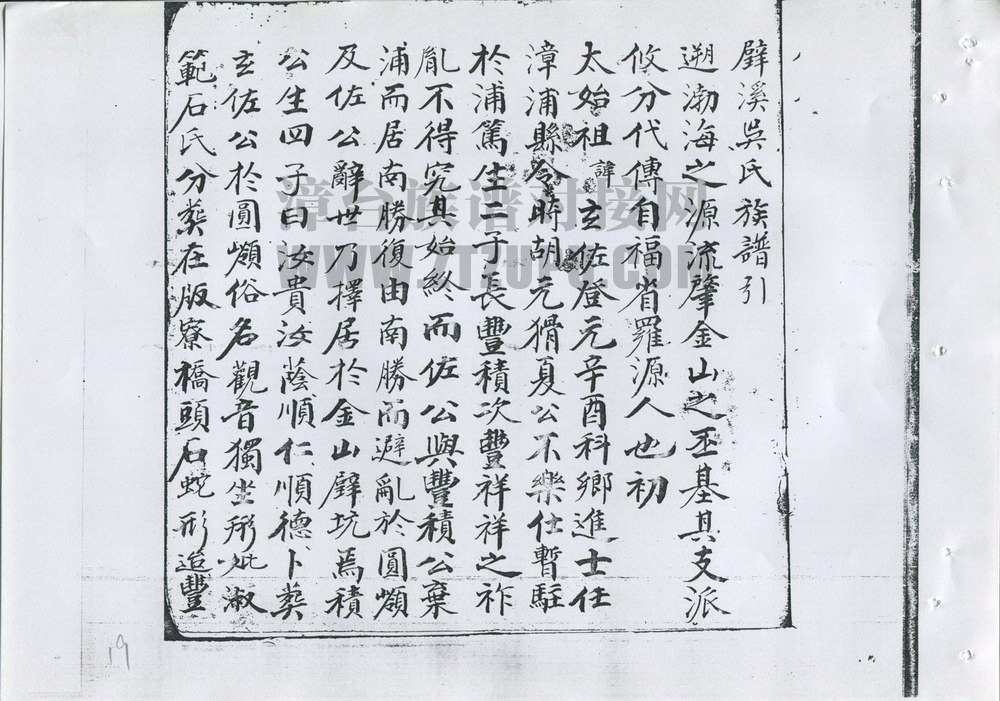 壁溪吳氏族譜引
遡渤海之源流肇金山之丕基其支派
攸分代傳自福省羅源人也初
太始祖諱玄佐登元辛酉科鄉進士任
漳浦縣令時胡元猾夏公不樂仕暫駐
於浦篤生二子長豐積次豐祥祥之祚
胤不得究其始終而佐公與豐積公棄
浦而居南勝復由南勝而避亂於圓嶺
及佐公辭世乃擇居於金山壁坑焉積
公生四子曰汝貴汝蔭順仁順德卜葬
玄佐公於圓嶺俗名觀音獨坐形妣淑
範石氏分葬在版寮橋頭石蛇形迨豐
漳台族谱对接网
19